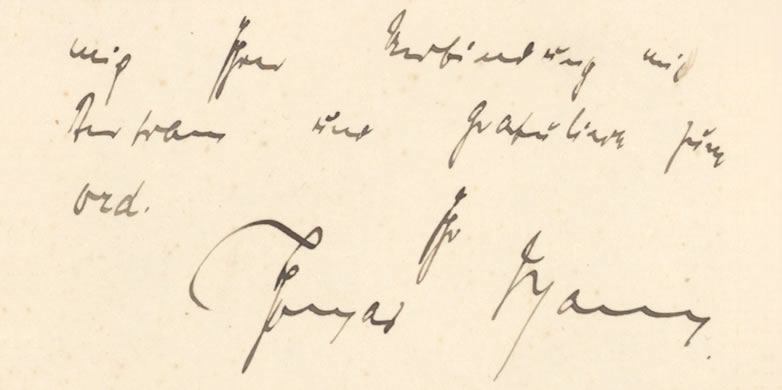 mich Ihrer Verbindung mit
Bertram und gratuliere zum
Ord.
Ihr
Thomas Mann.